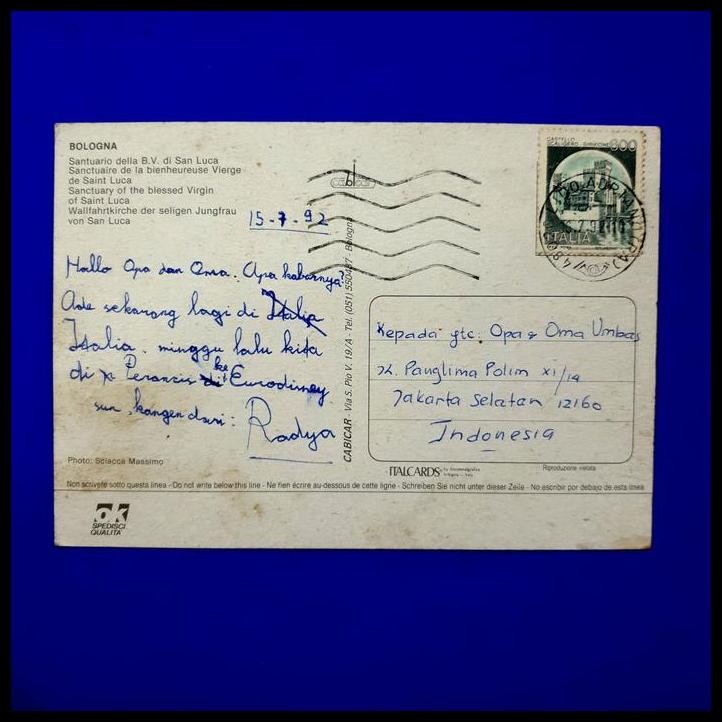 BOLOGNA
Santuario della B.V. di San Luca
Sanctuaire de la bienheureuse Vierge
de Saint Luca
Sanctuary of the blessed Virgin
of Saint Luca
Wallfahrtkirche der seligen Jungfrau
von San Luca
15-7-92
Hallo Opa dan Oma. Apa kabarnya?
Ade sekarang lagi di Italia
Italia. minggu lalu kita
di Perancis di ke Eurodisney
sun, kangen dari:
Radya
Photo: Sciacca Massimo
CABICAR - Via S. Pio V. 19/A - Tel. (051) 550427 - Bologna
CASTELLO
SCALIGERO - SIRMIONE
600
ITALIA
Kepada ytc. Opa & Oma Umbas
Jl. Panglima Polim XI/14
Jakarta Selatan 12160
Indonesia
ITALCARDS
Riproduzione vietata
Non scrivete sotto questa linea - Do not write below this line - Ne rien écrire au-dessous de cette ligne - Schreiben Sie nicht unter dieser Zeile - No escribir por debajo de esta linea
OK
SPEDISCI
QUALITA'